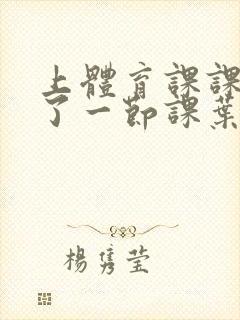 上體育課課
了一節課葉
楊雋瑩